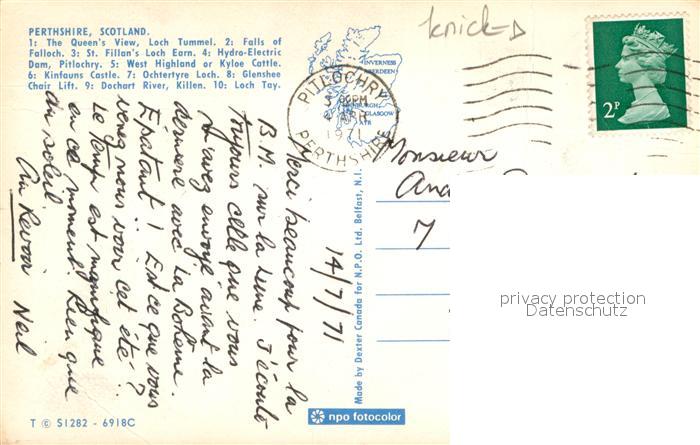 knick
PERTHSHIRE, SCOTLAND.
1: The Queen's View, Loch Tummel. 2: Falls of
Falloch. 3: St. Fillan's Loch Earn. 4: Hydro-Electric
Dam, Pitlochry. 5: West Highland or Kyloe Cattle.
6: Kinfauns Castle. 7: Ochtertyre Loch. 8: Glenshee
Chair Lift. 9: Dochart River, Killen. 10: Loch Tay.
INVERNESS
ABERDEEN
EDINBURGH
GLASGOW
AYR
PITLOCHRY
PM
1971
PERTHSHIRE
2P
14/7/71
Merci beaucoup pour la
B.M. sur la Lune. J'écoute
toujours celle que vous
m'avez envoyé avant la
dernière avec La Bohème.
Épatant! Est ce que vous
venez nous voir cet été?
Le temps est magnifique
en ce moment. Rien que
du soleil.
Au Revoir Neil
Monsieur
And
7
Made by Dexter Canada for N.P.O. Ltd. Belfast, N.I.
privacy protection
Datenschutz
T © S1282 - 6918C
npo fotocolor